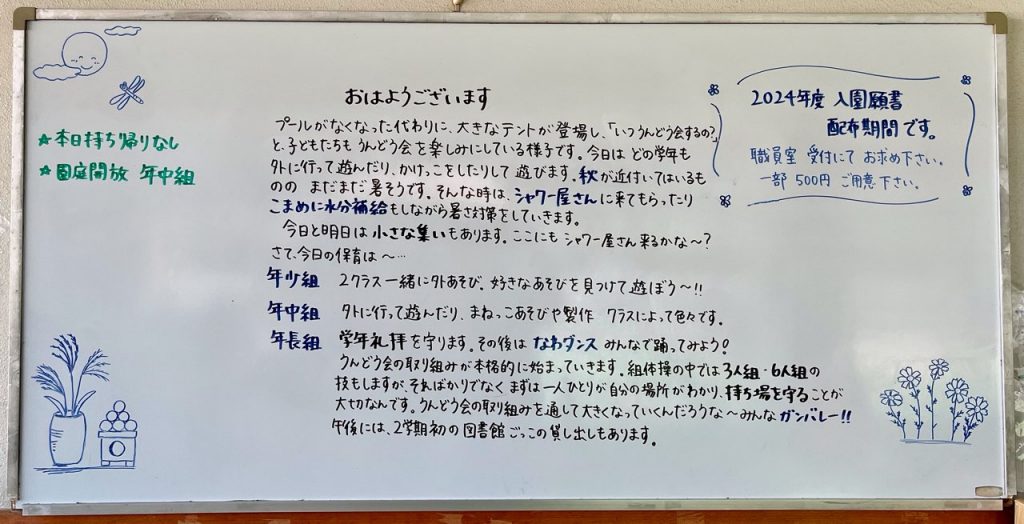 ★本日持ち帰りなし
★園庭開放 年中組
おはようございます
プールがなくなった代わりに、大きなテントが登場し、「いつうんどう会するの?」
と、子どもたちもうんどう会を楽しみにしている様子です。今日は どの学年も
外に行って遊んだり、かけっこをしたりして 遊びます。秋が近付いてはいるも
のの まだまだ暑そうです。そんな時は、シャワー屋さんに来てもらったり
こまめに水分補給もしながら暑さ対策をしていきます。
今日と明日は 小さな集いもあります。ここにも シャワー屋さん来るかな〜?
さて、今日の保育は〜…
年少組 2クラス一緒に外あそび、好きなあそびを見つけて遊ぼう〜!!
年中組 外に行って遊んだり、まねっこあそびや製作 クラスによって色々です。
年長組 学年礼拝を守ります。その後は なわダンス みんなで踊ってみよう!
うんどう会の取り組みが本格的に始まっていきます。組体操の中では3人組・6人組の
技もしますが、そればかりでなく まずは一人ひとりが自分の場所がわかり、持ち場を守ることが
大切なんです。うんどう会の取り組みを通して大きくなっていくんだろうな〜みんな ガンバレー!!
午後には、2学期初の図書館ごっこの貸し出しもあります。
2024年度 入園願書
配布期間です。
職員室 受付にて お求め下さい。
一部 500円 ご用意下さい。